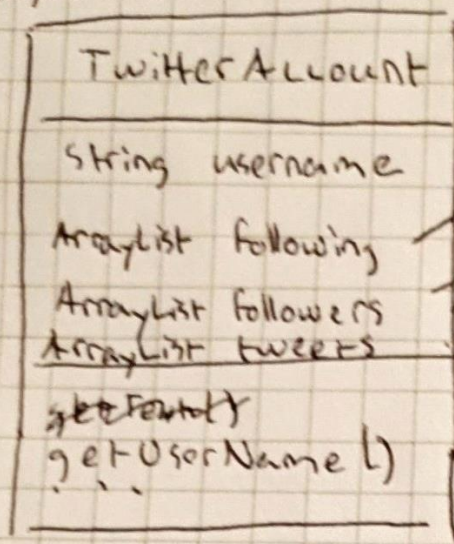 TwitterAccount
String username
ArrayList following
ArrayList followers
ArrayList tweets
getUserName()
...